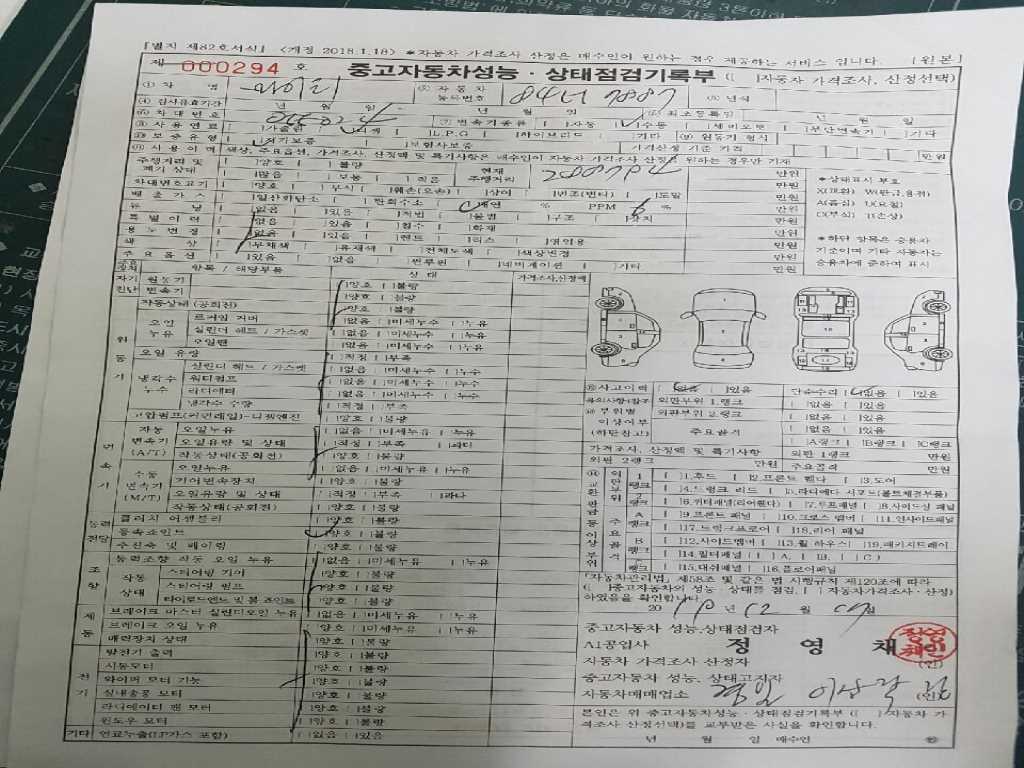 [별지 제82호서식] <개정 2018.1.18> *자동차 가격조사 산정은 매수인이 원하는 경우 제공하는 서비스 입니다. [원본]
제 000294 호 중고자동차성능 · 상태점검기록부 ([ ]자동차 가격조사, 산정선택)
① 차 명 마이티 ② 자동차등록번호 84너7887 ③ 년식
④ 검사유효기간 년 월 일 년 월 일 최초등록일 년 월 일
⑥ 차대번호 ⑦ 변속기종류 [ ]자동 [ ]수동 [ ]세미오토 [ ]무단변속기 [ ]기타
⑧ 사용연료 [ ]가솔린 [ ]디젤 [ ]L.P.G [ ]하이브리드 [ ]기타 원동기 형식
보증유형 [ ]자기보증 [ ]보험사보증 가격산정 기준 가격 만원
사용이력 색상, 주요옵션, 가격조사, 산정액 및 특기사항은 매수인이 자동차 가격조사 산정을 원하는 경우만 기재
주행거리 및 계기 상태 [ ]양호 [ ]불량 현재 주행거리 만원
[ ]많음 [ ]보통 [ ]적음 만원
차대번호표기 [ ]양호 [ ]부식 [ ]훼손(오손) [ ]상이 [ ]변조(변타) [ ]도말 만원
배출가스 [ ]일산화탄소 [ ]탄화수소 [ ]매연 % PPM % 만원
튜닝 [ ]없음 [ ]있음 [ ]적법 [ ]불법 [ ]구조 [ ]장치 만원
특별이력 [ ]없음 [ ]있음 [ ]침수 [ ]화재 만원
용도변경 [ ]없음 [ ]있음 [ ]렌트 [ ]리스 [ ]영업용 만원
색상 [ ]무채색 [ ]유채색 [ ]전체도색 [ ]색상변경 만원
주요옵션 [ ]있음 [ ]없음 [ ]썬루프 [ ]네비게이션 [ ]기타 만원
*상태표시 부호
X(교환) W(판금,용접)
A(흠집) U(요철)
C(부식) T(손상)
*하단 항목은 승용차
기준이며 기타 자동차는
승용차에 준하여 표시
주요장치 항목 / 해당부품 상태 가격조사,산정액
자기진단 원동기 [ ]양호 [ ]불량
변속기 [ ]양호 [ ]불량
원동기 작동상태(공회전) [ ]양호 [ ]불량
오일누유 로커암 커버 [ ]없음 [ ]미세누수 [ ]누유
실린더 헤드 / 가스켓 [ ]없음 [ ]미세누수 [ ]누유
오일팬 [ ]없음 [ ]미세누수 [ ]누유
오일 유량 [ ]적정 [ ]부족
냉각수누수 실린더 헤드 / 가스켓 [ ]없음 [ ]미세누수 [ ]누수
워터펌프 [ ]없음 [ ]미세누수 [ ]누수
라디에터 [ ]없음 [ ]미세누수 [ ]누수
냉각수 수량 [ ]적정 [ ]부족
고압펌프(커먼레일)-디젤엔진 [ ]양호 [ ]불량
변속기 자동변속기(A/T) 오일누유 [ ]없음 [ ]미세누유 [ ]누유
오일유량 및 상태 [ ]적정 [ ]부족 [ ]과다
작동상태(공회전) [ ]양호 [ ]불량
수동변속기(M/T) 오일누유 [ ]없음 [ ]미세누유 [ ]누유
기어변속장치 [ ]양호 [ ]불량
오일유량 및 상태 [ ]적정 [ ]부족 [ ]과다
작동상태(공회전) [ ]양호 [ ]불량
동력전달 클러치 어셈블리 [ ]양호 [ ]불량
등속조인트 [ ]양호 [ ]불량
추진축 및 베어링 [ ]양호 [ ]불량
조향 동력조향 작동 오일 누유 [ ]없음 [ ]미세누유 [ ]누유
작동상태 스티어링 기어 [ ]양호 [ ]불량
스티어링 펌프 [ ]양호 [ ]불량
타이로드엔드 및 볼 죠인트 [ ]양호 [ ]불량
제동 브레이크 마스터 실린더오일 누유 [ ]없음 [ ]미세누유 [ ]누유
브레이크 오일 누유 [ ]양호 [ ]미세누유 [ ]누유
배력장치 상태 [ ]양호 [ ]불량
전기 발전기 출력 [ ]양호 [ ]불량
시동모터 [ ]양호 [ ]불량
와이퍼 모터 기능 [ ]양호 [ ]불량
실내송풍 모터 [ ]양호 [ ]불량
라디에이터 팬 모터 [ ]양호 [ ]불량
윈도우 모터 [ ]양호 [ ]불량
기타 연료누출(LP가스 포함) [ ]없음 [ ]있음
사고이력 [ ]없음 [ ]있음 단순수리 [ ]없음 [ ]있음
유의사항(참조) 외판부위 1.랭크 [ ]없음 [ ]있음
부위별 이상여부 (하단참고) 외판부위 2.랭크 [ ]없음 [ ]있음
주요골격 [ ]없음 [ ]있음
[ ]A랭크 [ ]B랭크 [ ]C랭크
가격조사, 산정액 및 특기사항 외판 1랭크 만원
외판 2랭크 만원 주요골격 만원
1랭크 [ ]1.후드 [ ]2.프론트 휀다 [ ]3.도어
[ ]4.트렁크 리드 [ ]5.라디에다 서포트(볼트체결부품)
2랭크 [ ]6.쿼터패널(리어휀다) [ ]7.루프패널 [ ]8.사이드실 패널
A랭크 [ ]9.프론트 패널 [ ]10.크로스 멤버 [ ]11.인사이드패널
[ ]17.트렁크프로어 [ ]18.리어 패널
B랭크 [ ]12.사이드멤버 [ ]13.휠 하우스 [ ]19.패키지트레이
[ ]14.필터패널 ([ ]A, [ ]B, [ ]C)
C랭크 [ ]15.대쉬패널 [ ]16.플로어패널
「자동차관리법」 제58조 및 같은 법 시행규칙 제120조에 따라
([ ]중고자동차의 성능·상태를 점검, [ ]자동차가격조사·산정)
하였음을 확인합니다.
년 12 월
중고자동차 성능,상태점검자
A1공업사 정 영 채 (인)
자동차 가격조사 산정자
중고자동차 성능, 상태고지자
자동차매매업소 (인)
본인은 위 중고자동차성능 · 상태점검기록부 ([ ]자동차 가
격조사 산정선택)를 교부받은 사실을 확인합니다.
년 월 일 매수인